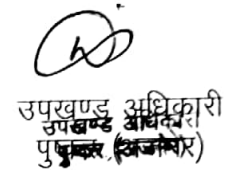 उपखण्ड अधिकारी
उपखण्ड अधिकारी
पुष्कर (अजमेर)